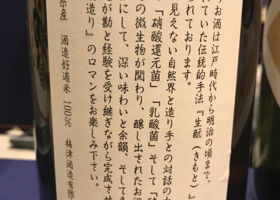 お酒は江戸時代から明治の頃まで、
れていた伝統的手法『生酛（きもと）』
れております。
見えない自然界と造り手との対話の
『硝酸還元菌』『乳酸菌』そして『
の微生物が関わり、醸し出されたお
にして、深い味わいと余韻、そして
が勘と経験を受け継ぎながら完成さ
造り』のロマンをお楽しみ下さい。
県産 酒造好適米 100％ 梅津酒造有